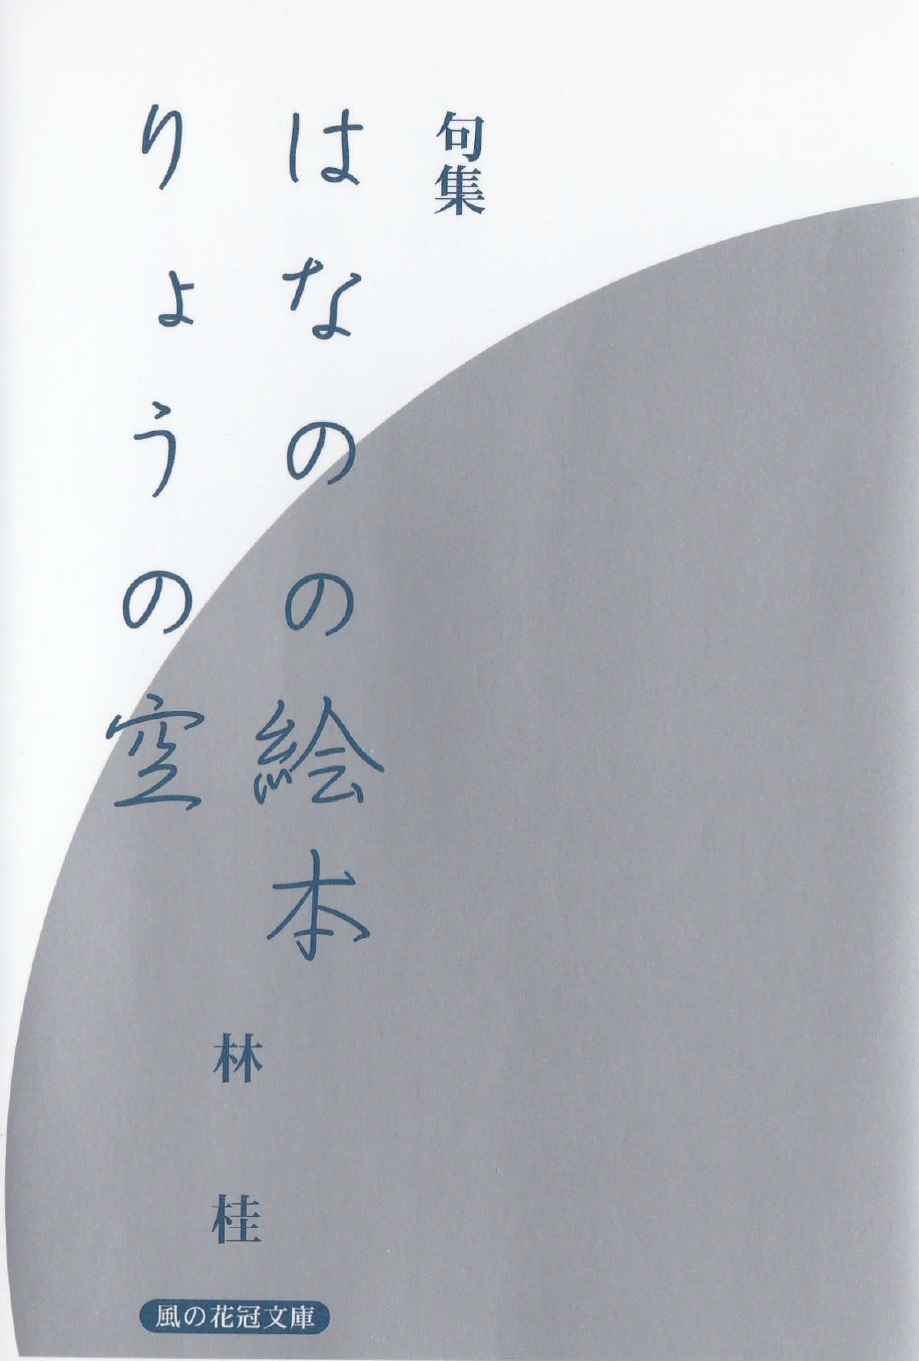 句集
はなのの絵本
りょうの空
林 桂
風の花冠文庫